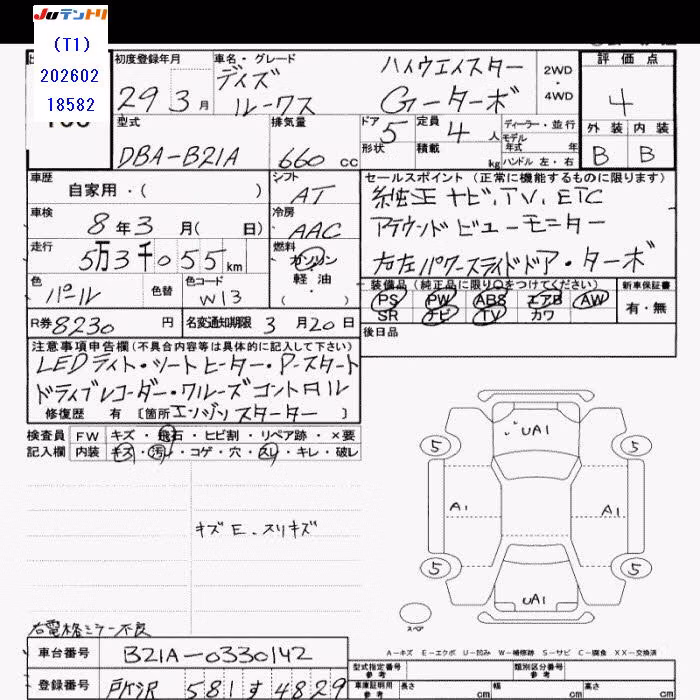 Juテントリ
(T1)
202602
18582
初度登録年月 車名・グレード
29 3月 デイズ ルークス ハイウエイスター Gーターボ 2WD 4WD
評価点
4
外装 内装
B B
型式 排気量 ドア 定員
DBA-B21A 660 cc 5 4人
形状 積載 kg
ディーラー・並行
モデル年式 年
ハンドル 左・右
車歴 自家用・( ) シフト AT
車検 8年3月( 日) 冷房 AAC
走行 5万3千055km 燃料 ガソリン・軽油・
色 パール 色替 色コード W13
R券 8230円 名変通知期限 3月20日
セールスポイント (正常に機能するものに限ります)
純正ナビ、TV、ETC
アラウンドビューモニター
右左パワースライドドア・ターボ
装備品(純正品に限り○をつけてください) 新車保証書
PS PW ABS エアB AW 有・無
SR ナビ TV カワ
後日品
注意事項申告欄(不具合内容等は具体的に記入して下さい)
LEDライト・シートヒーター・P.スタート
ドライブレコーダー・クルーズコントロール
修復歴 有 [箇所 エンジンスターター ]
検査員 FW キズ・飛石・ヒビ割・リペア跡・×要
記入欄 内装 キズ・汚レ・コゲ・穴・スレ・キレ・破レ
キズE.スリキズ
右電格ミラー不良
UA1
5 5
A1 A1
5 5
UA1
スペア
A-キズ E-エクボ U-凹み W-補修跡 S-サビ C-腐食 XX-交換済
車台番号 B21A-0330142
登録番号 581す4829
型式指定番号 参考 類別区分番号 参考
車庫証明用 参考 長さ cm 幅 cm 高さ cm